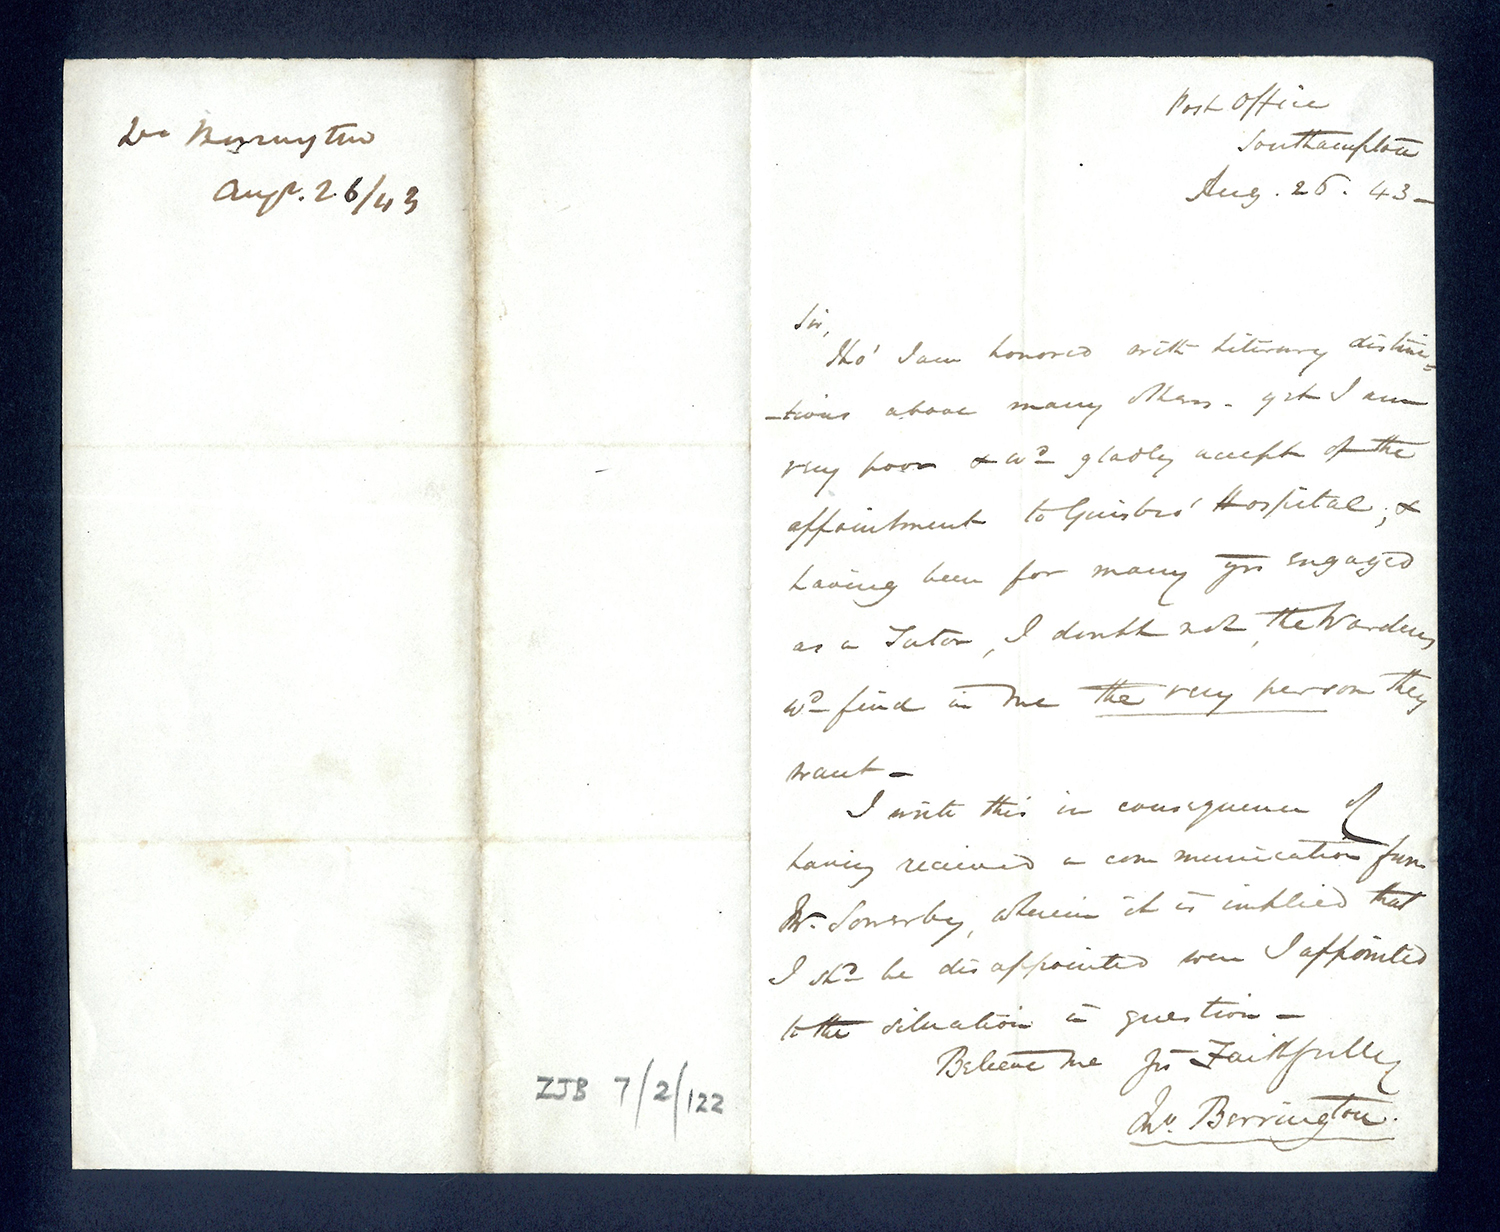 Berrington
Augt. 26/43
ZJB 7/2/122
Post Office
Southampton
Aug. 26. 43 -
Sir,
Tho' I am honored with Literary distinc-
-tions above many others - yet I am
very poor & wd gladly accept of the
appointment to Guisbro' Hospital; &
having been for many yrs engaged
as a Tutor, I doubt not, the Wardens
wd find in me the very person they
want -
I write this in consequence of
having received a communication from
Mr. Sowerby, wherein it is implied that
I shd be disappointed were I appointed
to the situation in question -
Believe me Yrs Faithfully
Jno. Berrington.